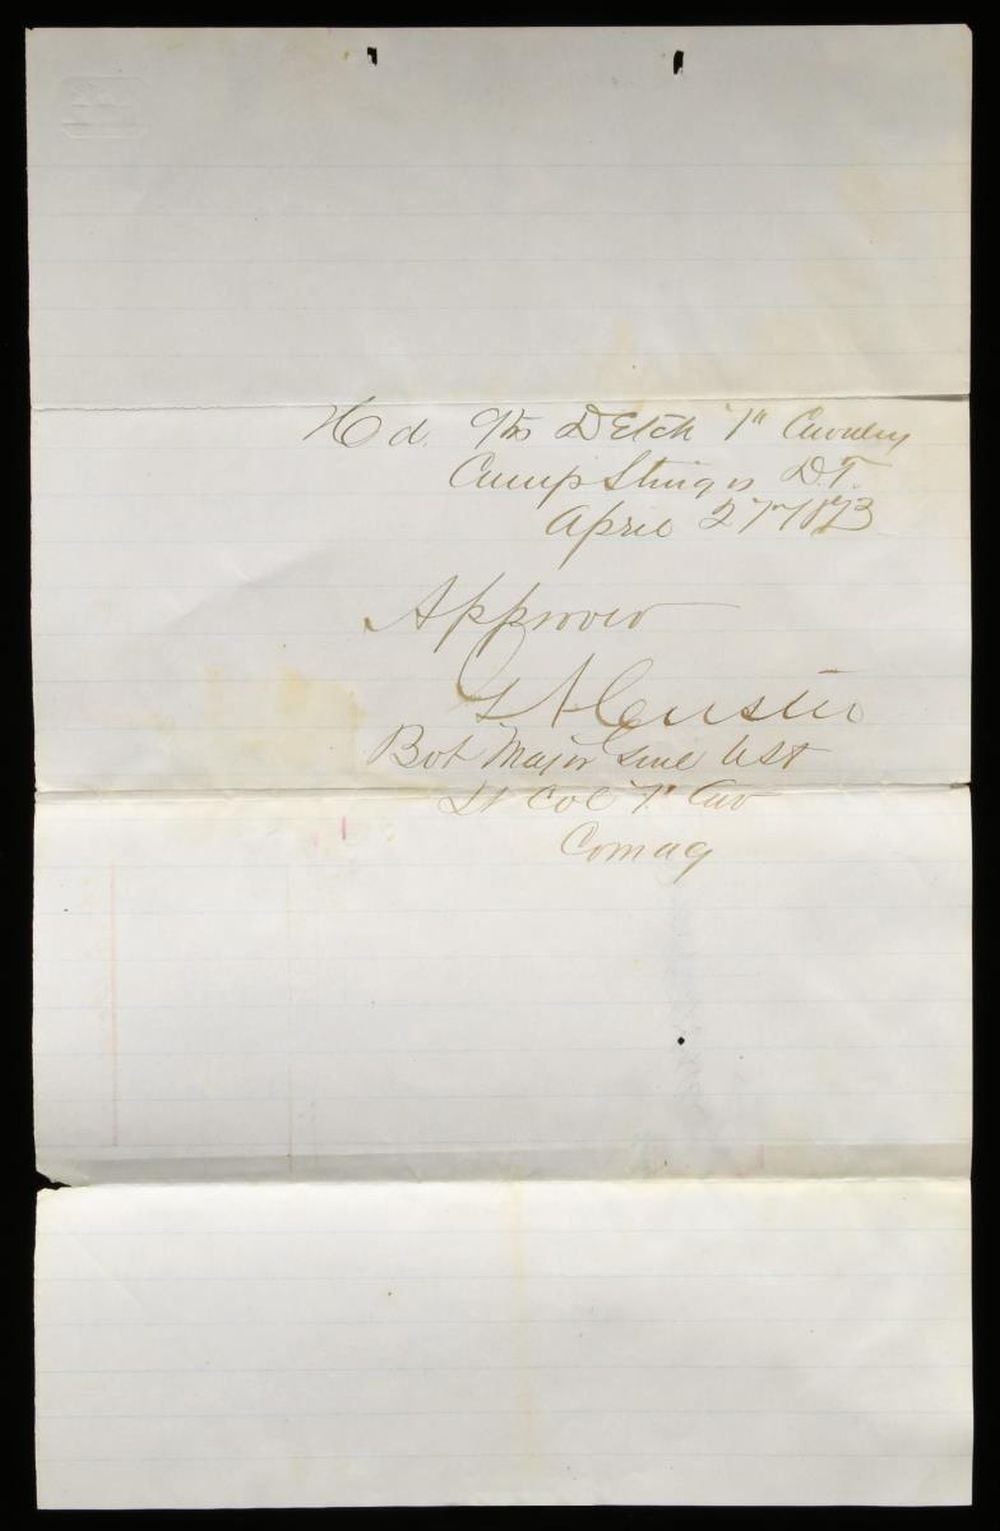 Hd. Qrs Detch 7" Cavalry
Camp Sturgis D.T.
April 27" 1873
Approved
G A Custer
Bvt Major Genl USA
Lt Col 7" Cav
Comdg